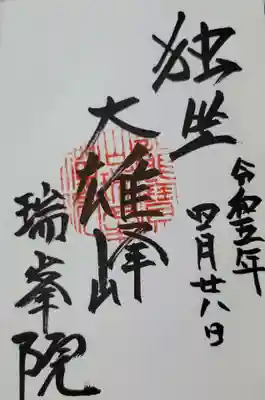 令和五年
四月廿八日
独坐
大雄峰
瑞峯院